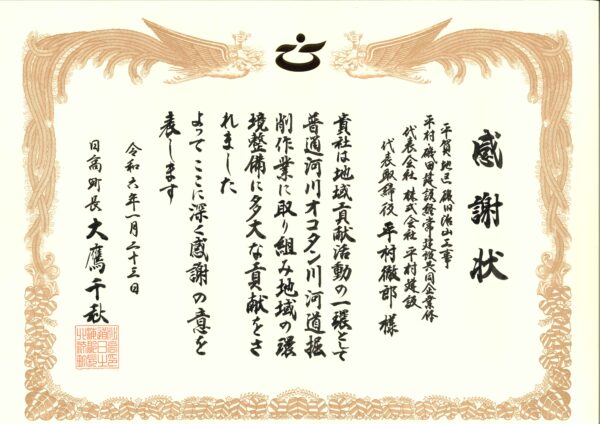 感謝状
平賀地区復旧治山工事
平村・磯田建設経常建設共同企業体
代表会社 株式会社 平村建設
代表取締役 平村徹郎 様
貴社は地域貢献活動の一環として
普通河川オコタン川河道掘
削作業に取り組み地域の環
境整備に多大な貢献をさ
れました
よってここに深く感謝の意を
表します
令和六年一月二十三日
日高町長 大鷹千秋